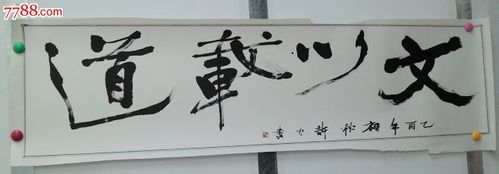 7788.com
文以載道
乙酉年初秋
書